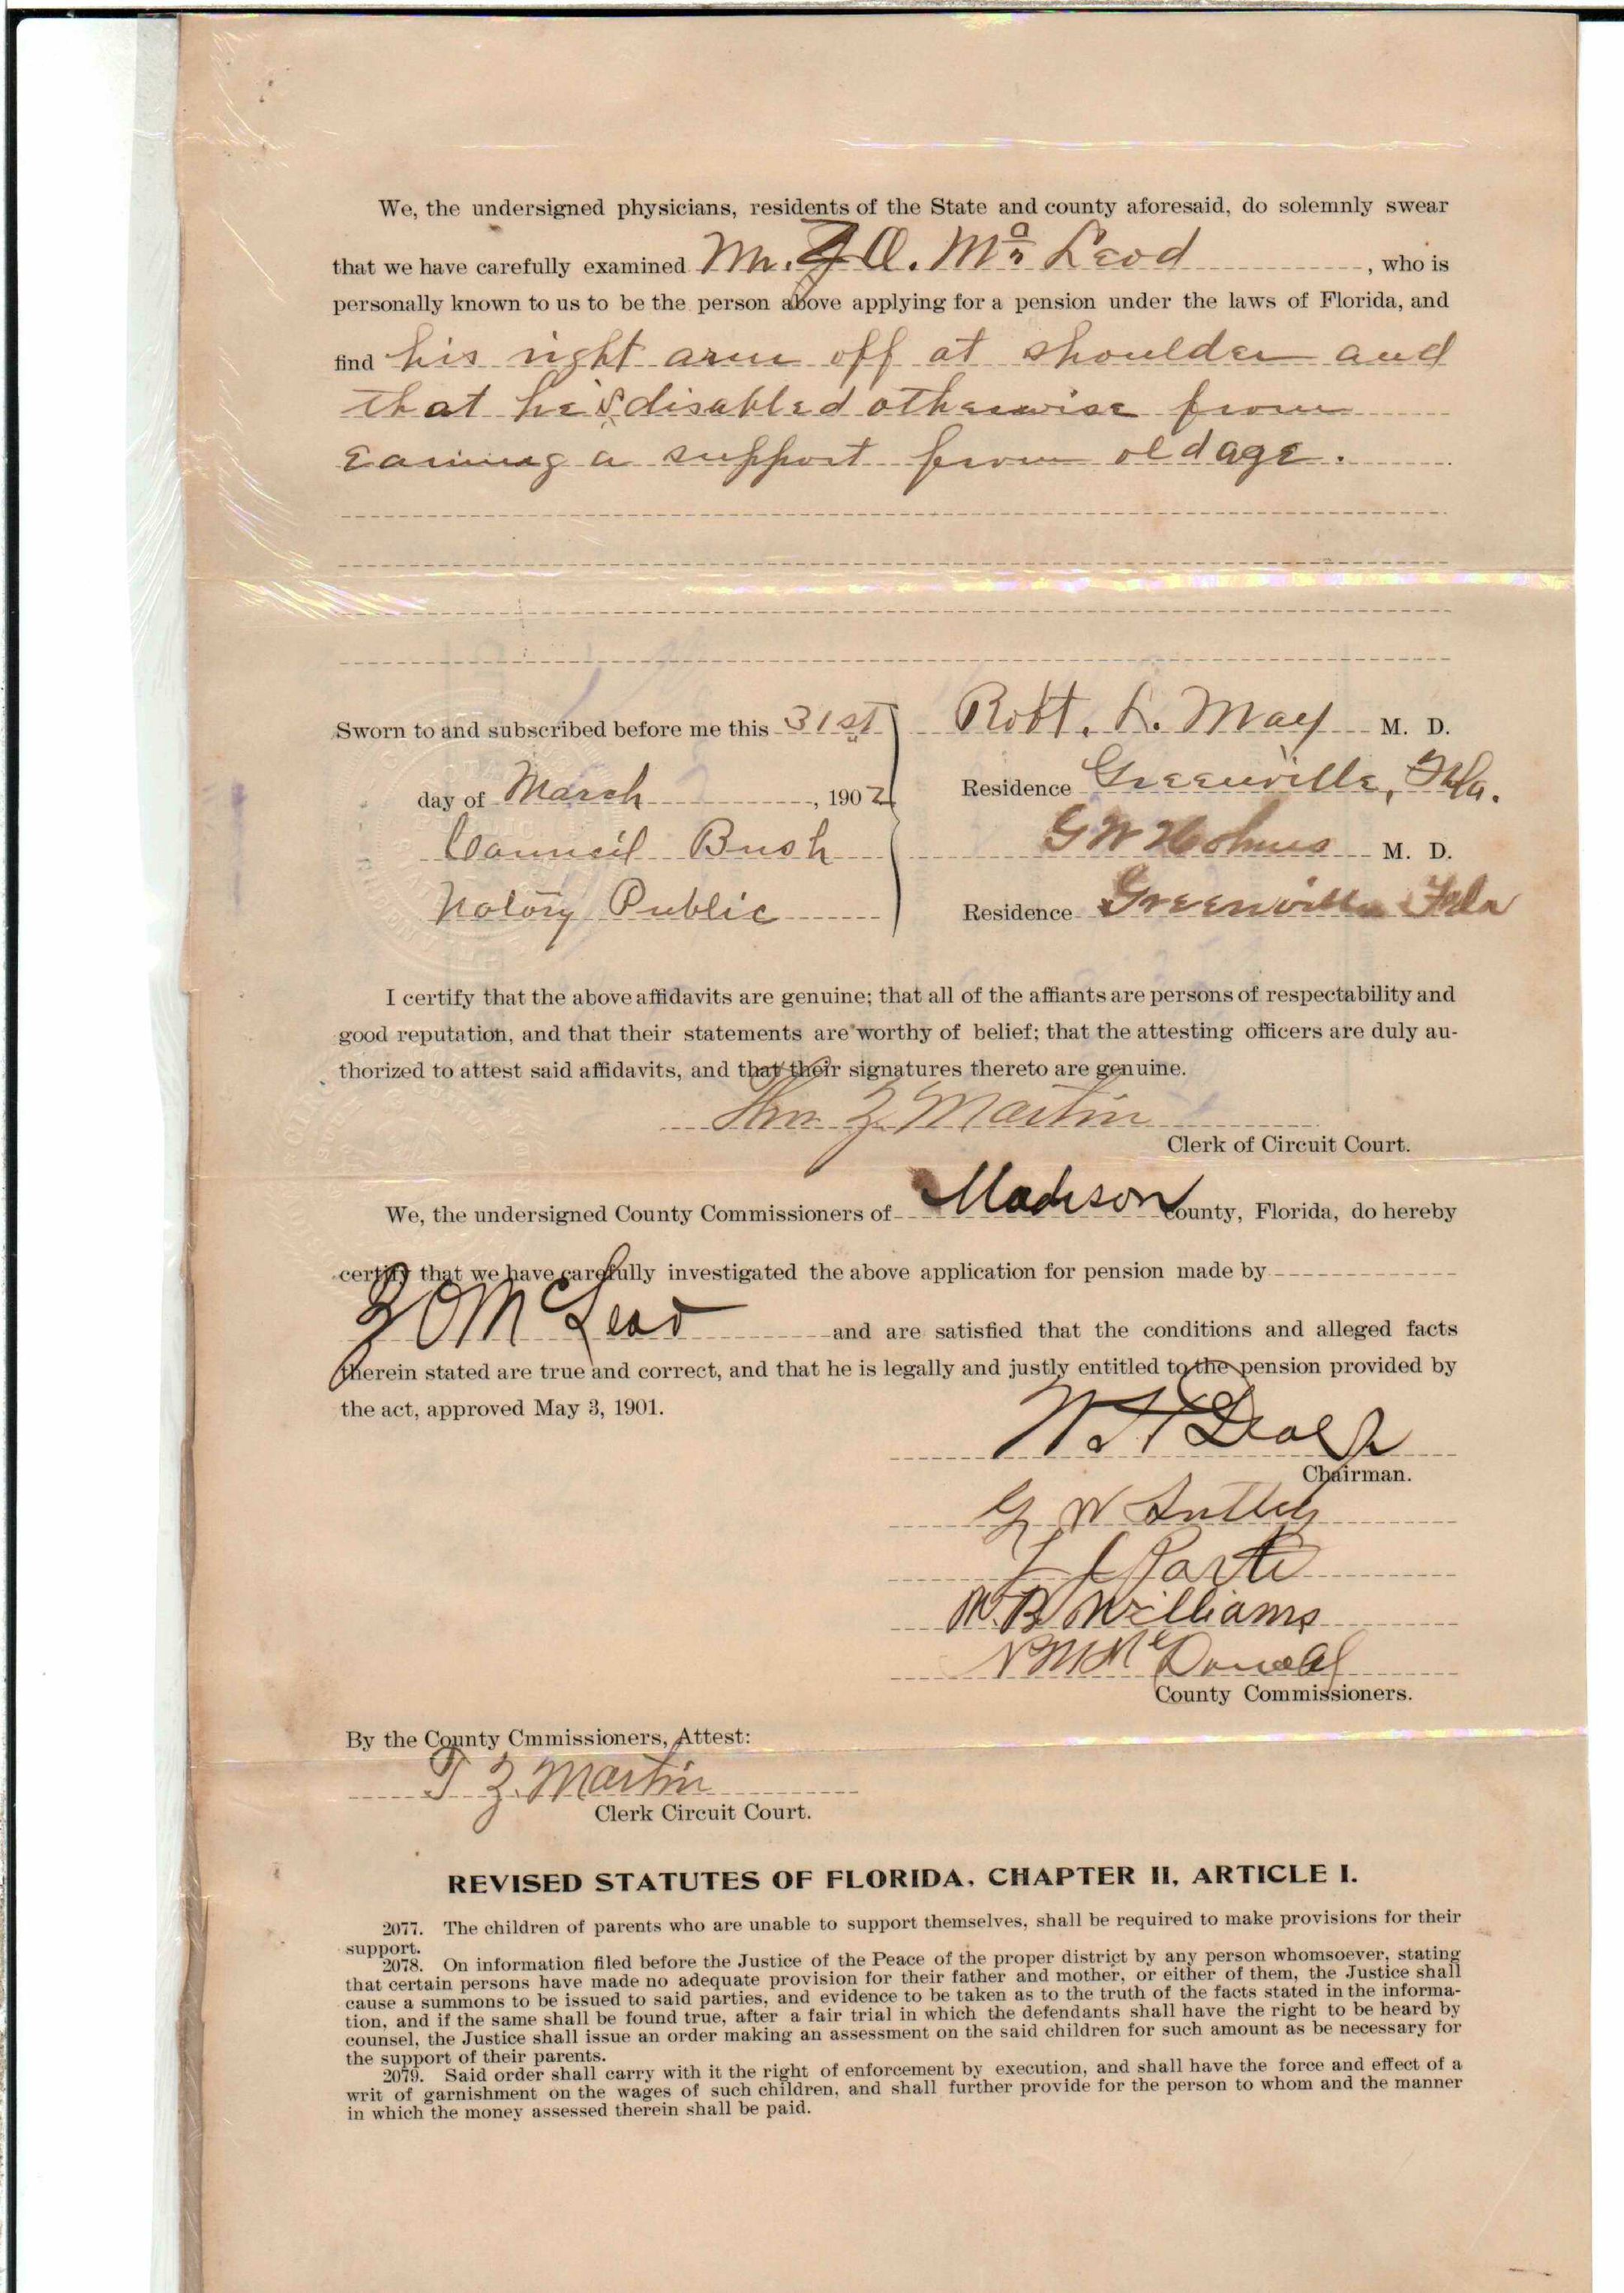 We, the undersigned physicians, residents of the State and county aforesaid, do solemnly swear
that we have carefully examined Mr. J O. Mc Leod, who is
personally known to us to be the person above applying for a pension under the laws of Florida, and
find his right arm off at shoulder and
that he is disabled otherwise from
earning a support from old age.
Sworn to and subscribed before me this 31st
day of March, 1902
Council Bush
Notory Public
Robt. L. May M. D.
Residence Greenville, Fla.
G W Holmes M. D.
Residence Greenville Fla
I certify that the above affidavits are genuine; that all of the affiants are persons of respectability and
good reputation, and that their statements are worthy of belief; that the attesting officers are duly au-
thorized to attest said affidavits, and that their signatures thereto are genuine.
Z Martin
Clerk of Circuit Court.
We, the undersigned County Commissioners of Madison County, Florida, do hereby
certify that we have carefully investigated the above application for pension made by
O McLeod and are satisfied that the conditions and alleged facts
therein stated are true and correct, and that he is legally and justly entitled to the pension provided by
the act, approved May 3, 1901.
Chairman.
G W
W. B Williams
N M McDonald
County Commissioners.
By the County Cmmissioners, Attest:
T Z. Martin
Clerk Circuit Court.
REVISED STATUTES OF FLORIDA, CHAPTER II, ARTICLE I.
2077. The children of parents who are unable to support themselves, shall be required to make provisions for their
support.
2078. On information filed before the Justice of the Peace of the proper district by any person whomsoever, stating
that certain persons have made no adequate provision for their father and mother, or either of them, the Justice shall
cause a summons to be issued to said parties, and evidence to be taken as to the truth of the facts stated in the informa-
tion, and if the same shall be found true, after a fair trial in which the defendants shall have the right to be heard by
counsel, the Justice shall issue an order making an assessment on the said children for such amount as be necessary for
the support of their parents.
2079. Said order shall carry with it the right of enforcement by execution, and shall have the force and effect of a
writ of garnishment on the wages of such children, and shall further provide for the person to whom and the manner
in which the money assessed therein shall be paid.